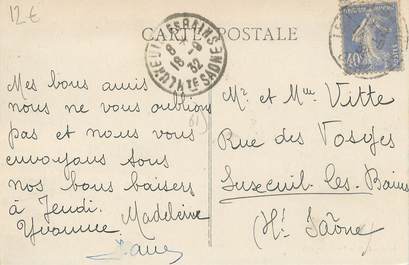 12€
CARTE POSTALE
LUXEUIL-LES-BAINS
8
18-9
32
HTE SAONE
40c
Mes bons amis
nous ne vous oublions
pas et nous vous
envoyons tous
nos bons baisers
à Jeudi.
Yvonne Madeleine
Mr et Mme Vitte
Rue des Vosges
Luxeuil-les-Bains
Hte Saône